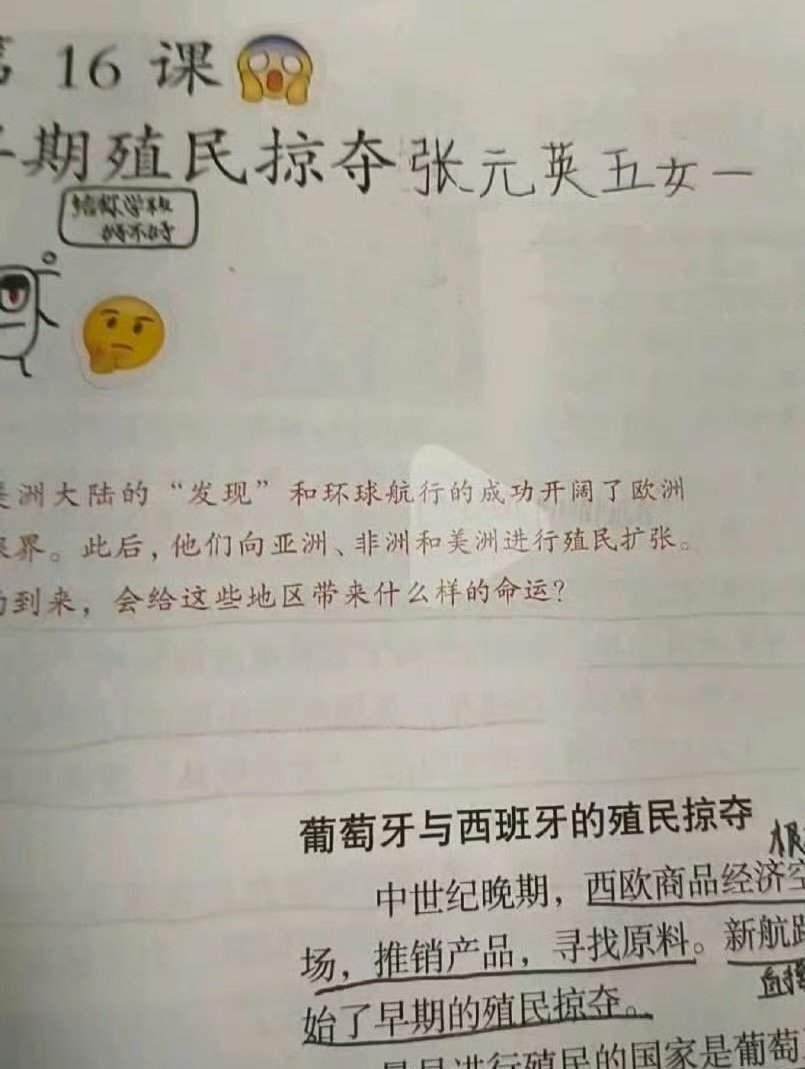 第 16 课
早期殖民掠夺张元英五女一
给你学校
好不好
美洲大陆的“发现”和环球航行的成功开阔了欧洲
眼界。此后，他们向亚洲、非洲和美洲进行殖民扩张。
的到来，会给这些地区带来什么样的命运？
葡萄牙与西班牙的殖民掠夺
根
中世纪晚期，西欧商品经济空
场，推销产品，寻找原料。新航路
直接
始了早期的殖民掠夺。
最早进行殖民的国家是葡萄